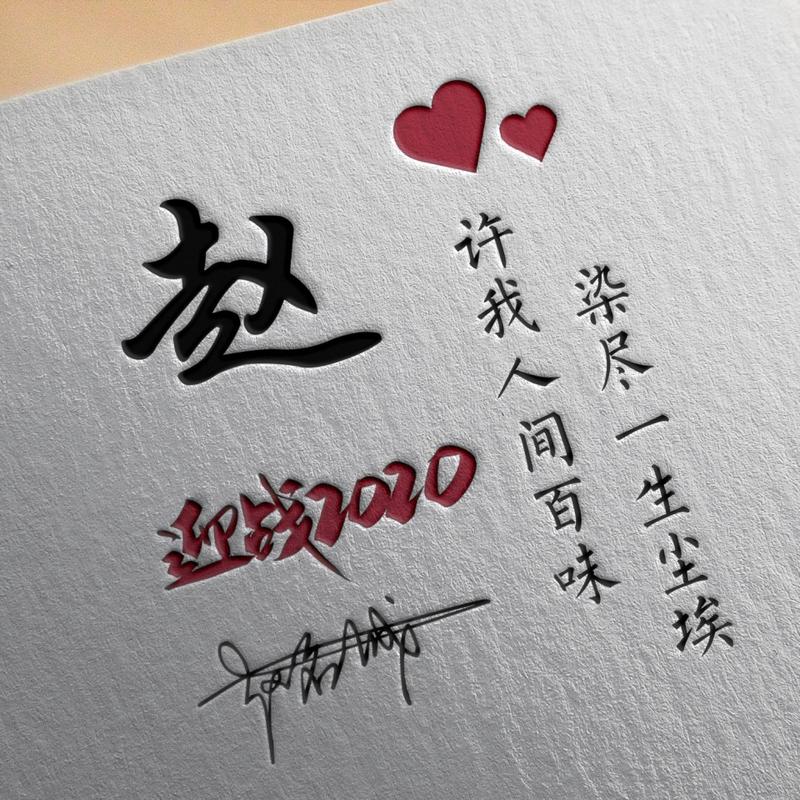 赵
迎战2020
许我人间百味
染尽一生尘埃